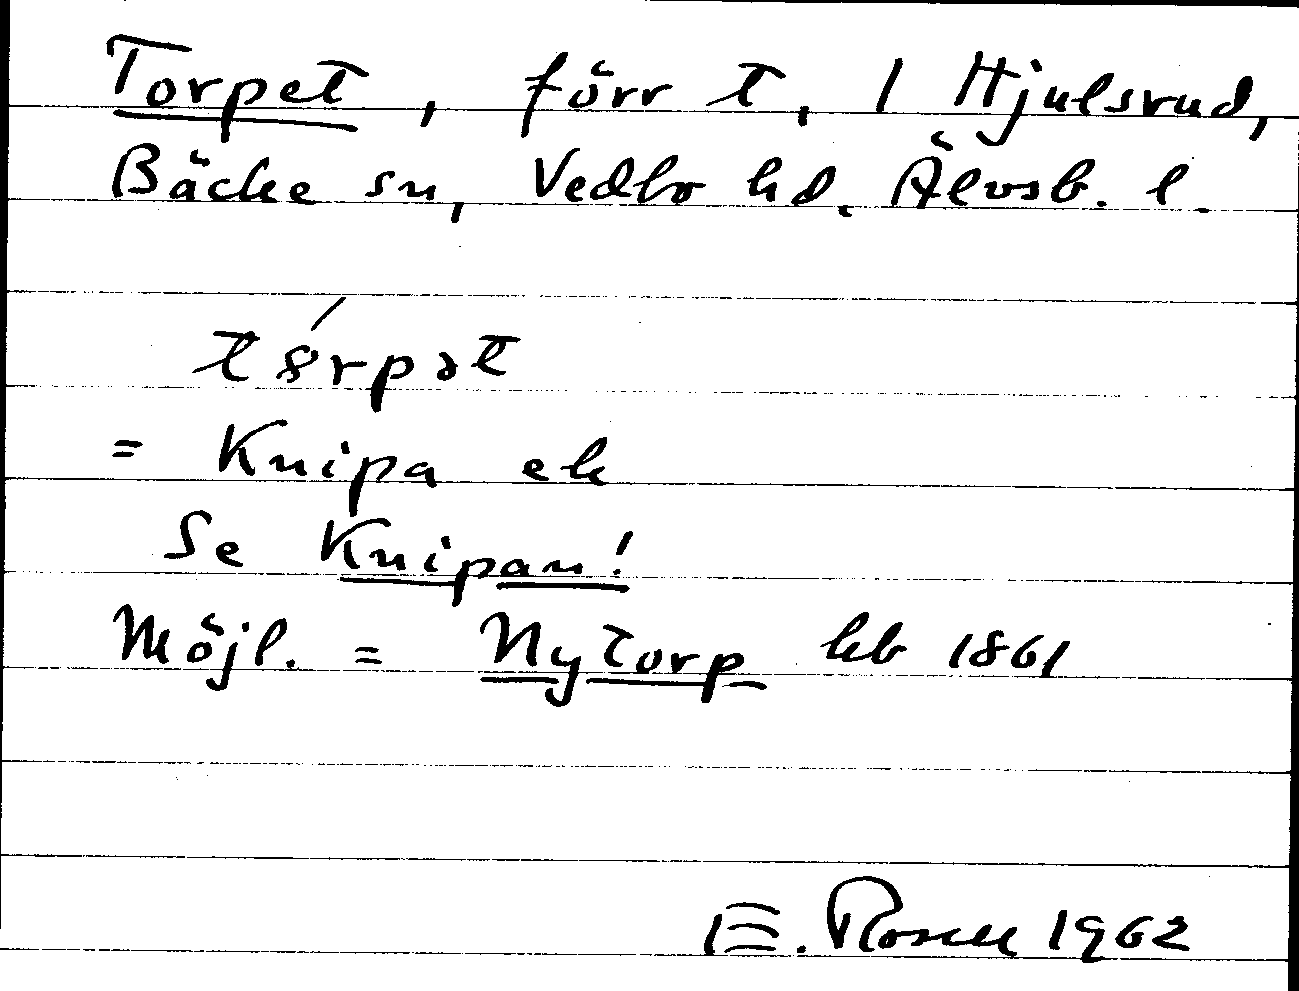 Torpet, förr t, 1 Hjulsrud,
Bäcke sn, Vedbo hd. Älvsb. l.
t8́rpət
= Knipa ek
Se Knipan!
Möjl. = Nytorp hb 1861
E. Rosell 1962